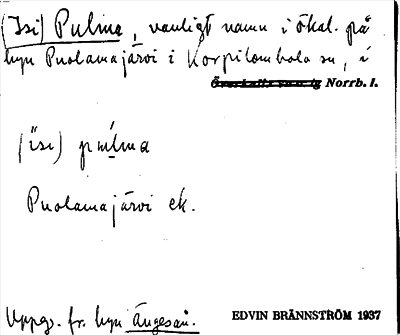 (Isi) Pulma, vanligt namn i ökal. på
byn Puolamajärvi i Korpilombolo sn, i
Överkalix sn o. lg Norrb. l.
(isi) pulma
Puolamajärvi ek.
Uppg. fr. byn Ängesån.
EDVIN BRÄNNSTRÖM 1937